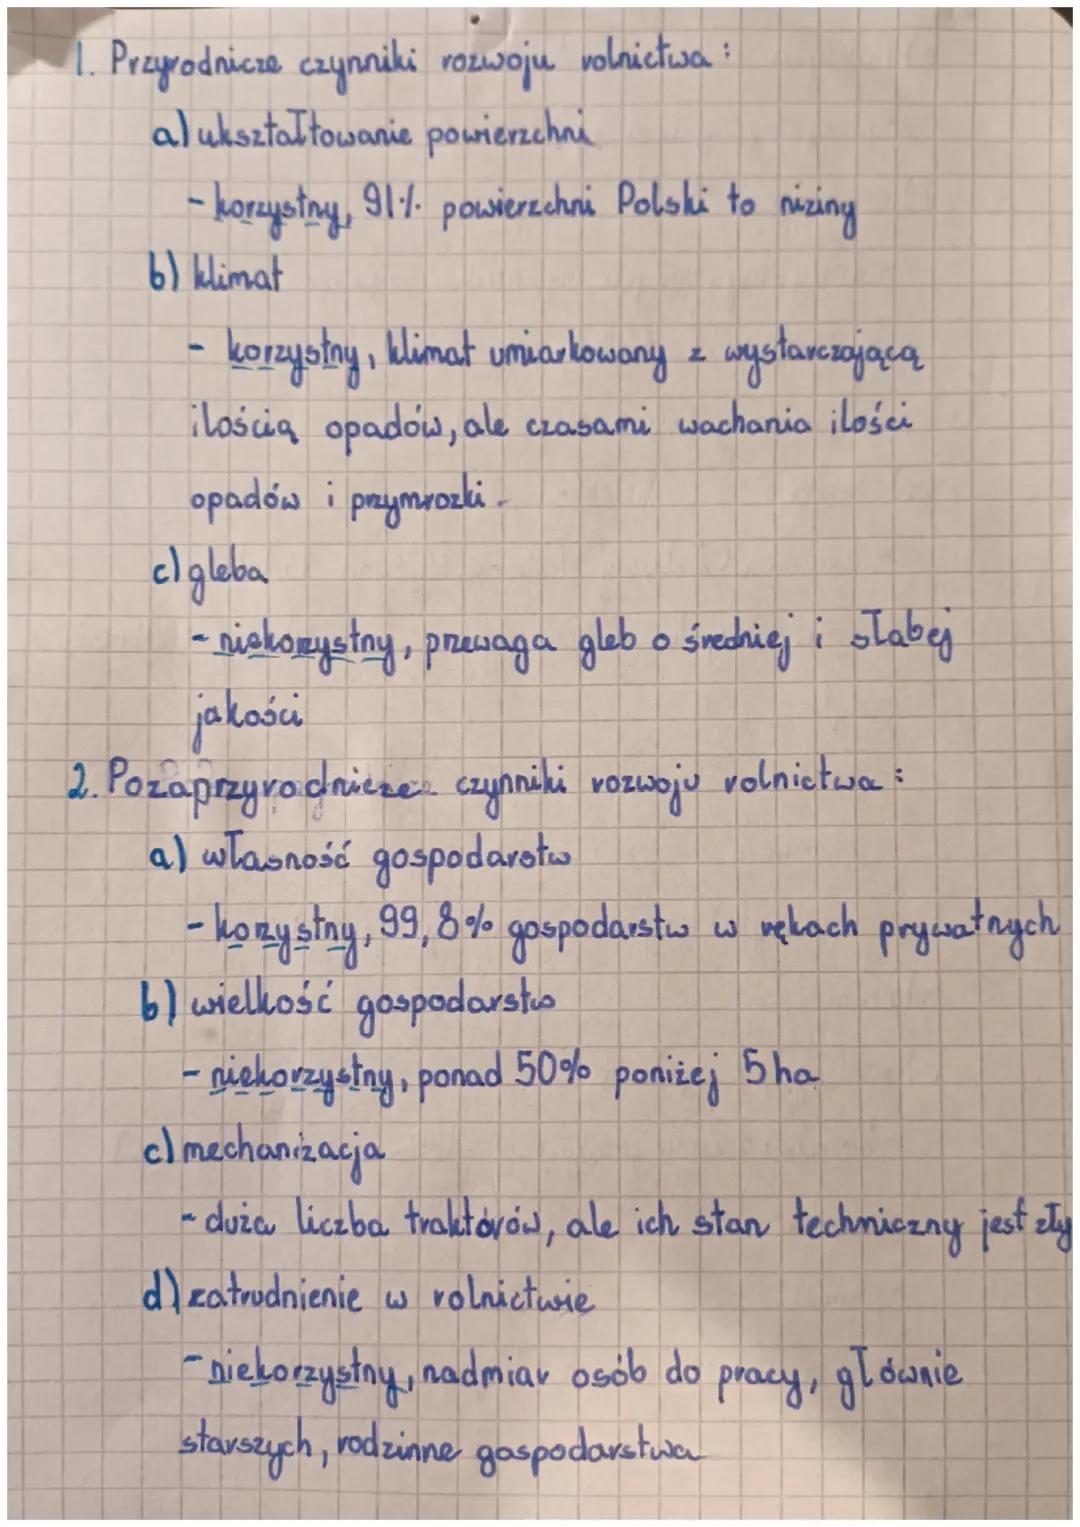 1. Przyrodnicze czynniki rozwoju rolnictwa :
a) ukształtowanie powierzchni
- korzystny, 91% powierzchni Polski to niziny
b) klimat
- korzystny, klimat umiarkowany z wystarczającą
ilością opadów, ale czasami wachania ilości
opadów i przymrozki.
c) gleba
- niekorzystny, przewaga gleb o średniej i słabej
jakości
2. Pozaprzyrodnicze czynniki rozwoju rolnictwa :
a) własność gospodarstw
- korzystny, 99,8% gospodarstw w rękach prywatnych
b) wielkość gospodarstw
- niekorzystny, ponad 50% poniżej 5 ha
c) mechanizacja
- duża liczba traktorów, ale ich stan techniczny jest zły
d) zatrudnienie w rolnictwie
- niekorzystny, nadmiar osób do pracy, głównie
starszych, rodzinne gospodarstwa